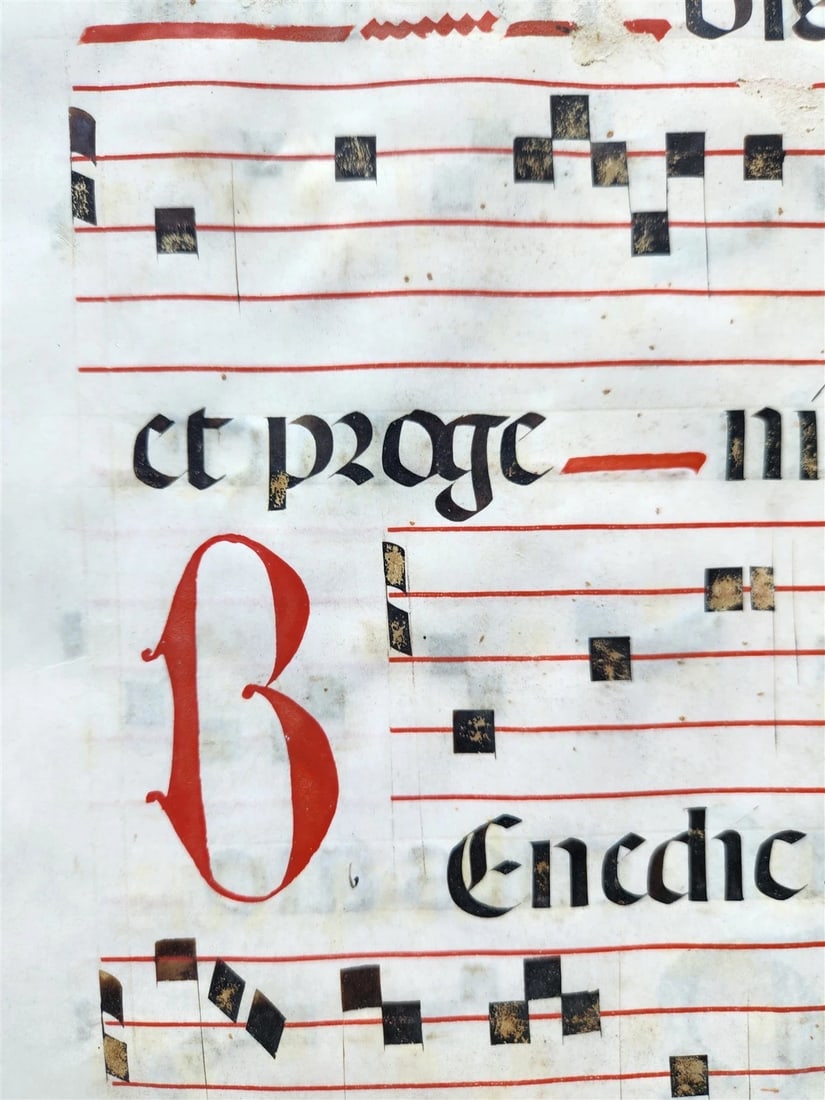 et proge ni
BEnedic